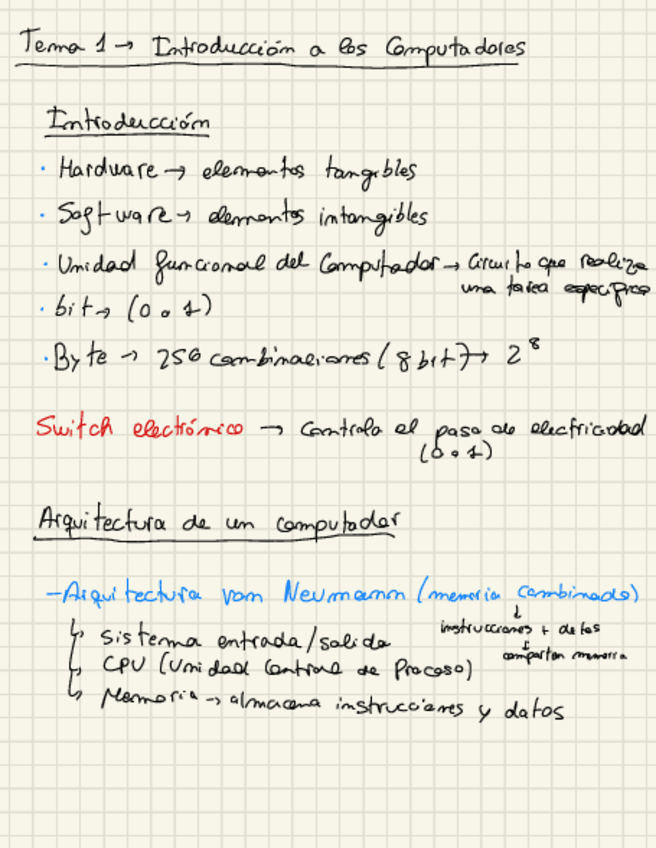 Tema 1 → Introducción a los Computadores
Introducción
· Hardware → elementos tangibles
· Software → elementos intangibles
· Unidad funcional del Computador → Circuito que realiza
una tarea específica
· bit → (0 o 1)
· Byte → 256 combinaciones (8 bit) → 2⁸
Switch electrónico → Controla el paso de electricidad
(0 o 1)
Arquitectura de un computador
- Arquitectura von Neumann (memoria combinada)
↓
instrucciones + datos
↓
comparten memoria
↳ Sistema entrada/salida
↳ CPU (Unidad Central de Proceso)
↳ Memoria → almacena instrucciones y datos